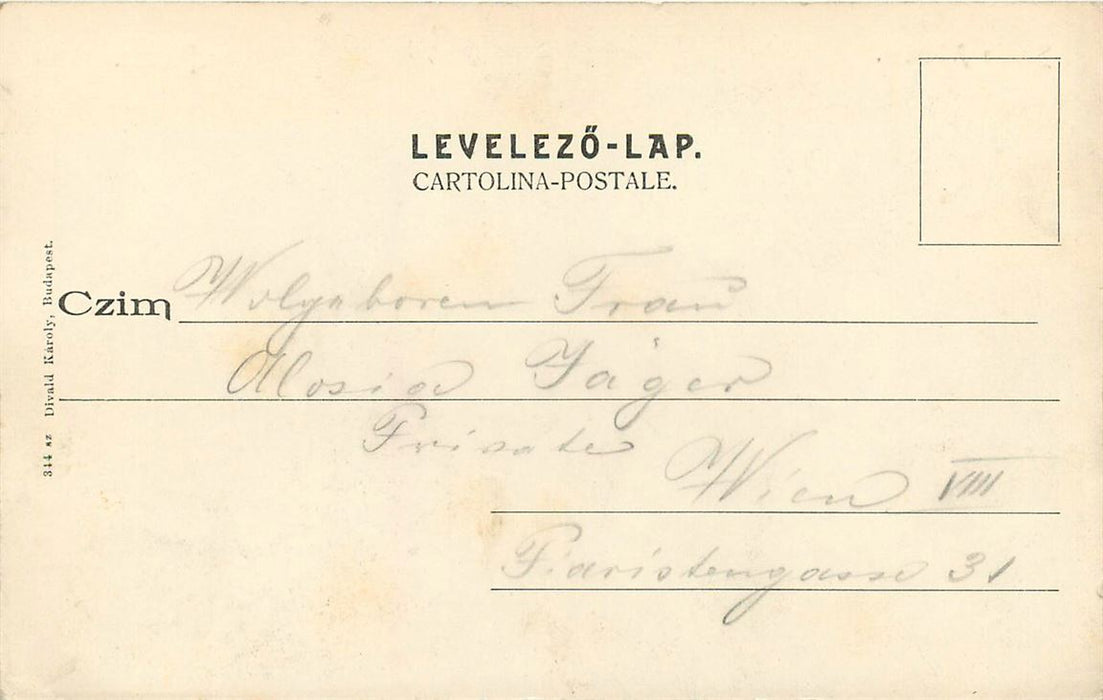 LEVELEZŐ-LAP.
CARTOLINA-POSTALE.
Czim Wolgeboren Frau
Alosia Jäger
Private
Wien VIII
Piaristengasse 31
344 sz Divald Károly, Budapest.